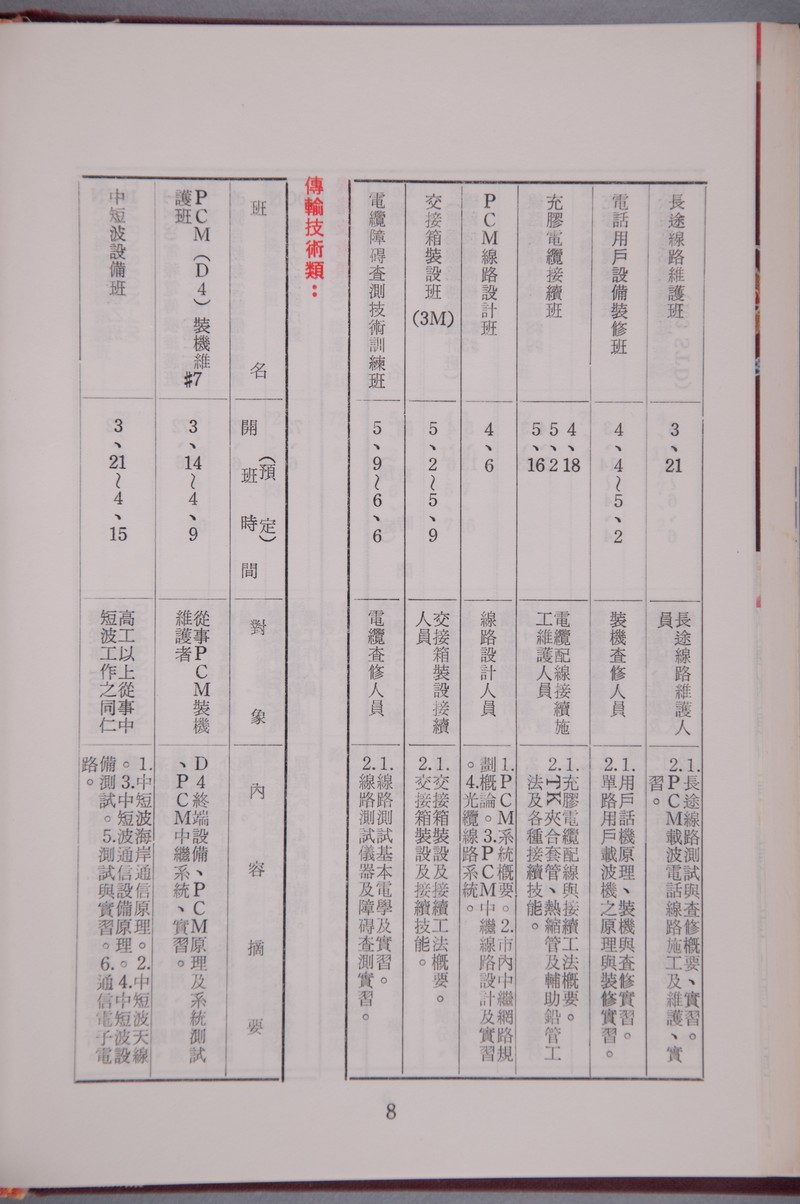 長途線路維護班
3、21
長途線路維護人
員
1.長途線路測試與查修概要、實習。
2.PCM載波電話線路施工及維護、實
習。
電話用戶設備裝修班
4、4~5、2
裝機查修人員
1.用戶話機原理、裝機與查修實習。
2.單路用戶載波機之原理與裝修實習。
充膠電纜接續班
4、18
5、2
5、16
電纜配線接續施
工維護人員
1.充膠電纜配線與接續工法概要。
2.TK夾合套管、熱縮管及輔助鉛管工
法及各種接續技能。
PCM線路設計班
4、6
線路設計人員
1.PCM系統概要。2.市內中繼網路規
劃概論。3.PCM中繼線路設計及實習
。4.光纜線路系統。
交接箱裝設班(3M)
5、2~5、9
交接箱裝設接續
人員
1.交接箱裝設及接續工法概要。
2.交接箱裝設及接續技能。
電纜障碍查測技術訓練班
5、9~6、6
電纜查修人員
1.線路測試基本電學及實習。
2.線路測試儀器及障碍查測實習。
傳輸技術類：
班名
(預定)
開班時間
對象
內容摘要
PCM(D4)裝機維
護班 #7
3、14~4、9
從事PCM裝機
維護者
D4終端設備、PCM原理及系統測試
、PCM中繼系統、實習。
中短波設備班
3、21~4、15
高工以上從事中
短波工作之同仁
1.中短波海岸通信原理。2.中短波天線
。3.中短波通信設備原理。4.中短波設
備測試。5.測試與實習。6.通信電子電
路。
8